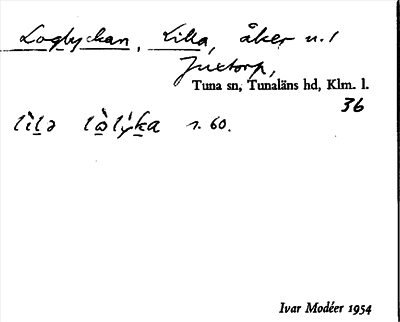 Loglyckan, Lilla, åker n.1
Juxtorp,
Tuna sn, Tunaläns hd, Klm. l.
36
lìlə lòlýka s. 60.
Ivar Modéer 1954